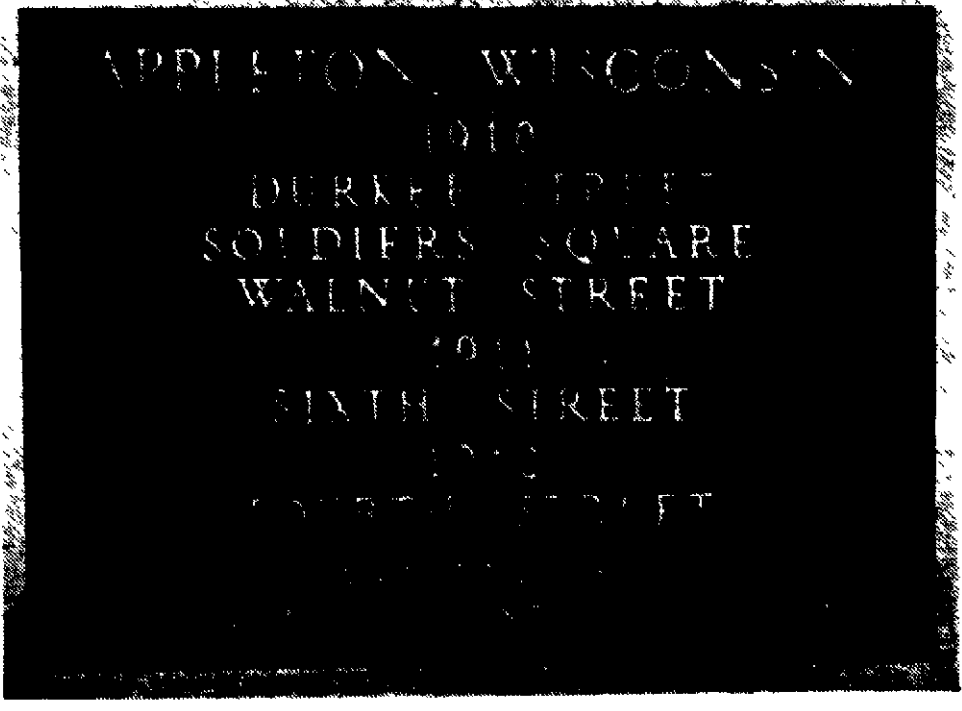 APPLETON, WISCONSIN
1910
DURKEE STREET
SOLDIERS SQUARE
WALNUT STREET
1911
SIXTH STREET
1912
FOURTH STREET